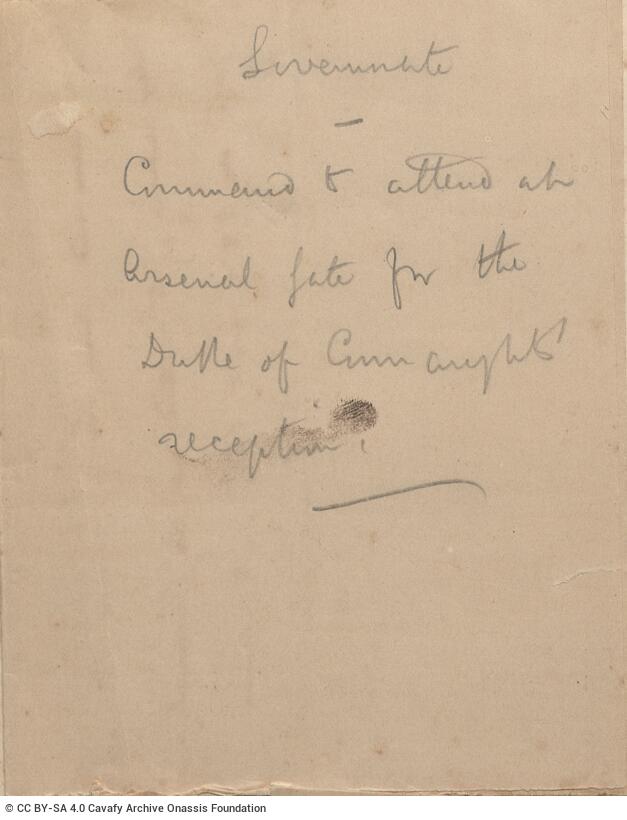 Governorate
—
Command to attend at
Arsenal gate for the
Duke of Connaughts'
reception.
© CC BY-SA 4.0 Cavafy Archive Onassis Foundation